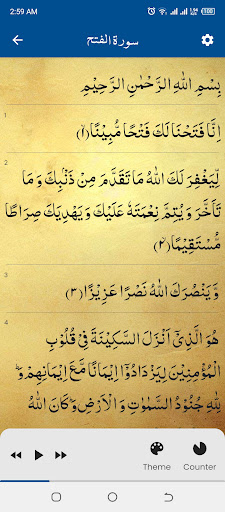 2:59 AM
سورة الفتح
بِسْمِ اللهِ الرَّحْمٰنِ الرَّحِيْمِ
1
اِنَّا فَتَحْنَا لَكَ فَتْحًا مُّبِيْنًا ﴿۱﴾
2
لِّيَغْفِرَ لَكَ اللهُ مَا تَقَدَّمَ مِنْ ذَنْۢبِكَ وَ مَا
تَاَخَّرَ وَ يُتِمَّ نِعْمَتَهٗ عَلَيْكَ وَ يَهْدِيَكَ صِرَاطًا
مُّسْتَقِيْمًا ﴿۲﴾
3
وَّ يَنْصُرَكَ اللهُ نَصْرًا عَزِيْزًا ﴿۳﴾
4
هُوَ الَّذِيْۤ اَنْزَلَ السَّكِيْنَةَ فِيْ قُلُوْبِ
الْمُؤْمِنِيْنَ لِيَزْدَادُوْۤا اِيْمَانًا مَّعَ اِيْمَانِهِمْ ؕ وَ
لِلّٰهِ جُنُوْدُ السَّمٰوٰتِ وَ الْاَرْضِ ؕ وَ كَانَ اللهُ
Theme
Counter